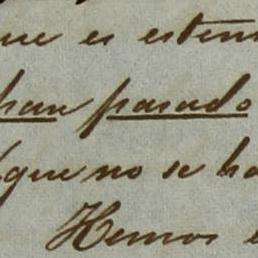 que es esten
han pasado
que no se ha
Hemos e